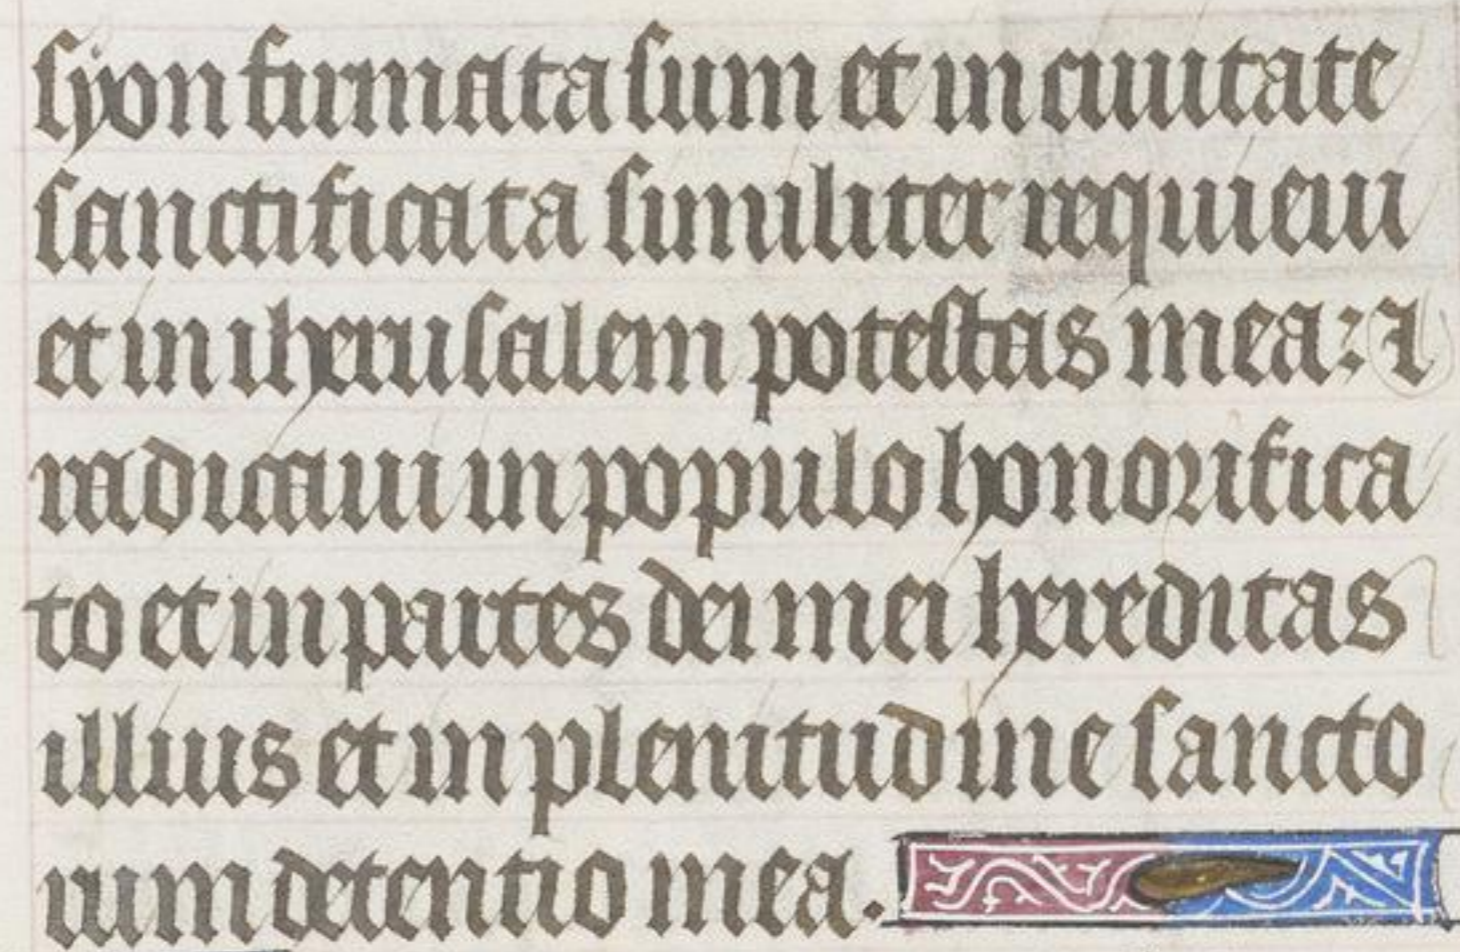 syon firmata sum et in ciuitate
sanctificata similiter requieui
et in iherusalem potestas mea: ⁊
radicaui in populo honorifica
to et in partes dei mei hereditas
illius et in plenitudine sancto
rum detentio mea.